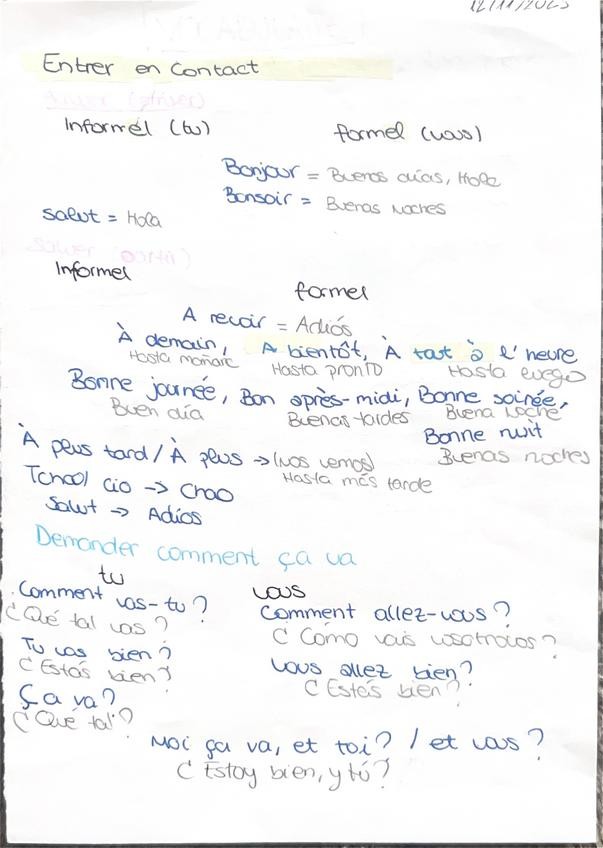 12/11/2023
Entrer en contact
Informel (tu)
formel (vous)
Bonjour = Buenos días, Hola
Bonsoir = Buenas Noches
Salut = Hola
Informel
formel
A revoir = Adiós
À demain, A bientôt, À tout à l'heure
Hasta mañana Hasta pronto Hasta luego
Bonne journée, Bon après-midi, Bonne soirée,
Buen día Buenas tardes Buena noche
Bonne nuit
Buenas noches
À plus tard / À plus -> (Nos vemos)
Hasta más tarde
cio -> Chao
Salut -> Adiós
Demander comment ça va
tu
vous
Comment vas-tu?
¿Qué tal vas?
Comment allez-vous?
¿Cómo vais vosotros?
Tu vas bien?
¿Estás bien?
Vous allez bien?
¿Estás bien?
Ça va?
¿Qué tal?
Moi ça va, et toi? / et vous?
¿Estoy bien, y tú?